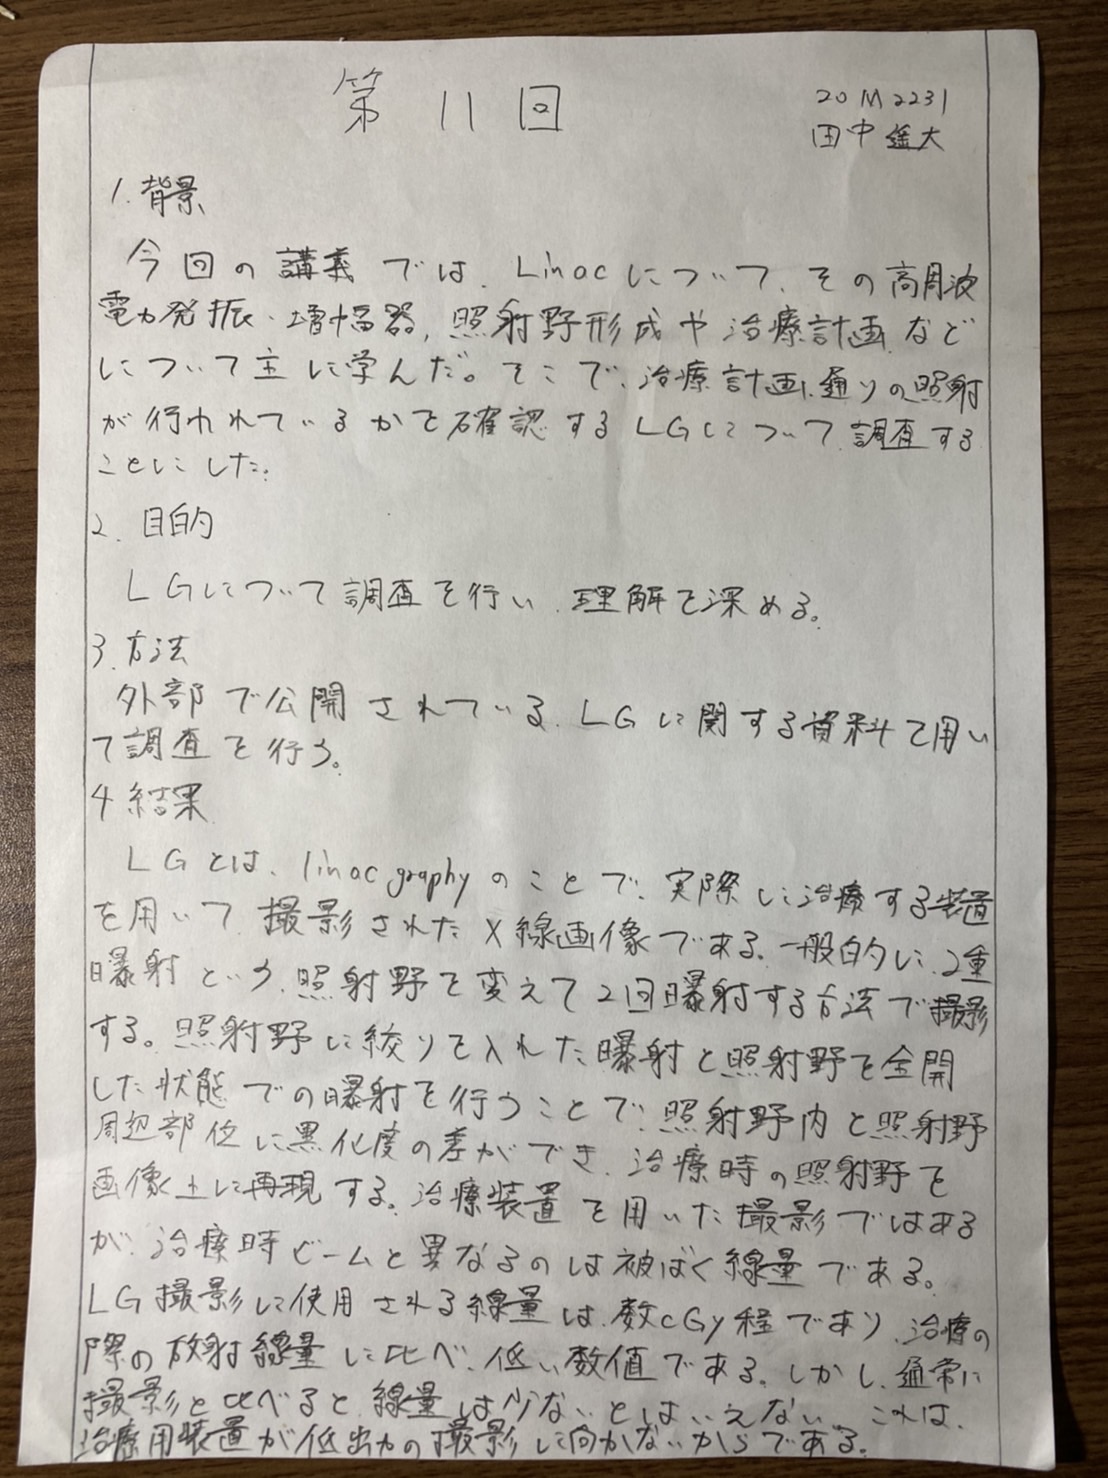 第11回
20M2231
田中遥大
1.背景
今回の講義では、Linacについて、その高周波
電力発振・増幅器、照射野形成や治療計画などに
について主に学んだ。そこで、治療計画通りの照射
が行われているかを確認するLGについて調査する
ことにした。
2.目的
LGについて調査を行い、理解を深める。
3.方法
外部で公開されている、LGに関する資料を用い
て調査を行う。
4結果
LGとは、linac graphyのことで、実際に治療する装置
を用いて撮影されたX線画像である。一般的に、2重
曝射という、照射野を変えて2回曝射する方法で撮影
する。照射野に絞りを入れた曝射と照射野を全開
した状態での曝射を行うことで、照射野内と照射野
周辺部位に黒化度の差ができ、治療時の照射野を
画像上に再現する。治療装置を用いた撮影ではある
が、治療時ビームと異なるのは被ばく線量である。
LG撮影に使用される線量は、数cGy程であり、治療の
際の放射線量に比べ、低い数値である。しかし、通常に
撮影と比べると、線量は少ないとはいえない。これは、
治療用装置が低出力の撮影に向かないからである。